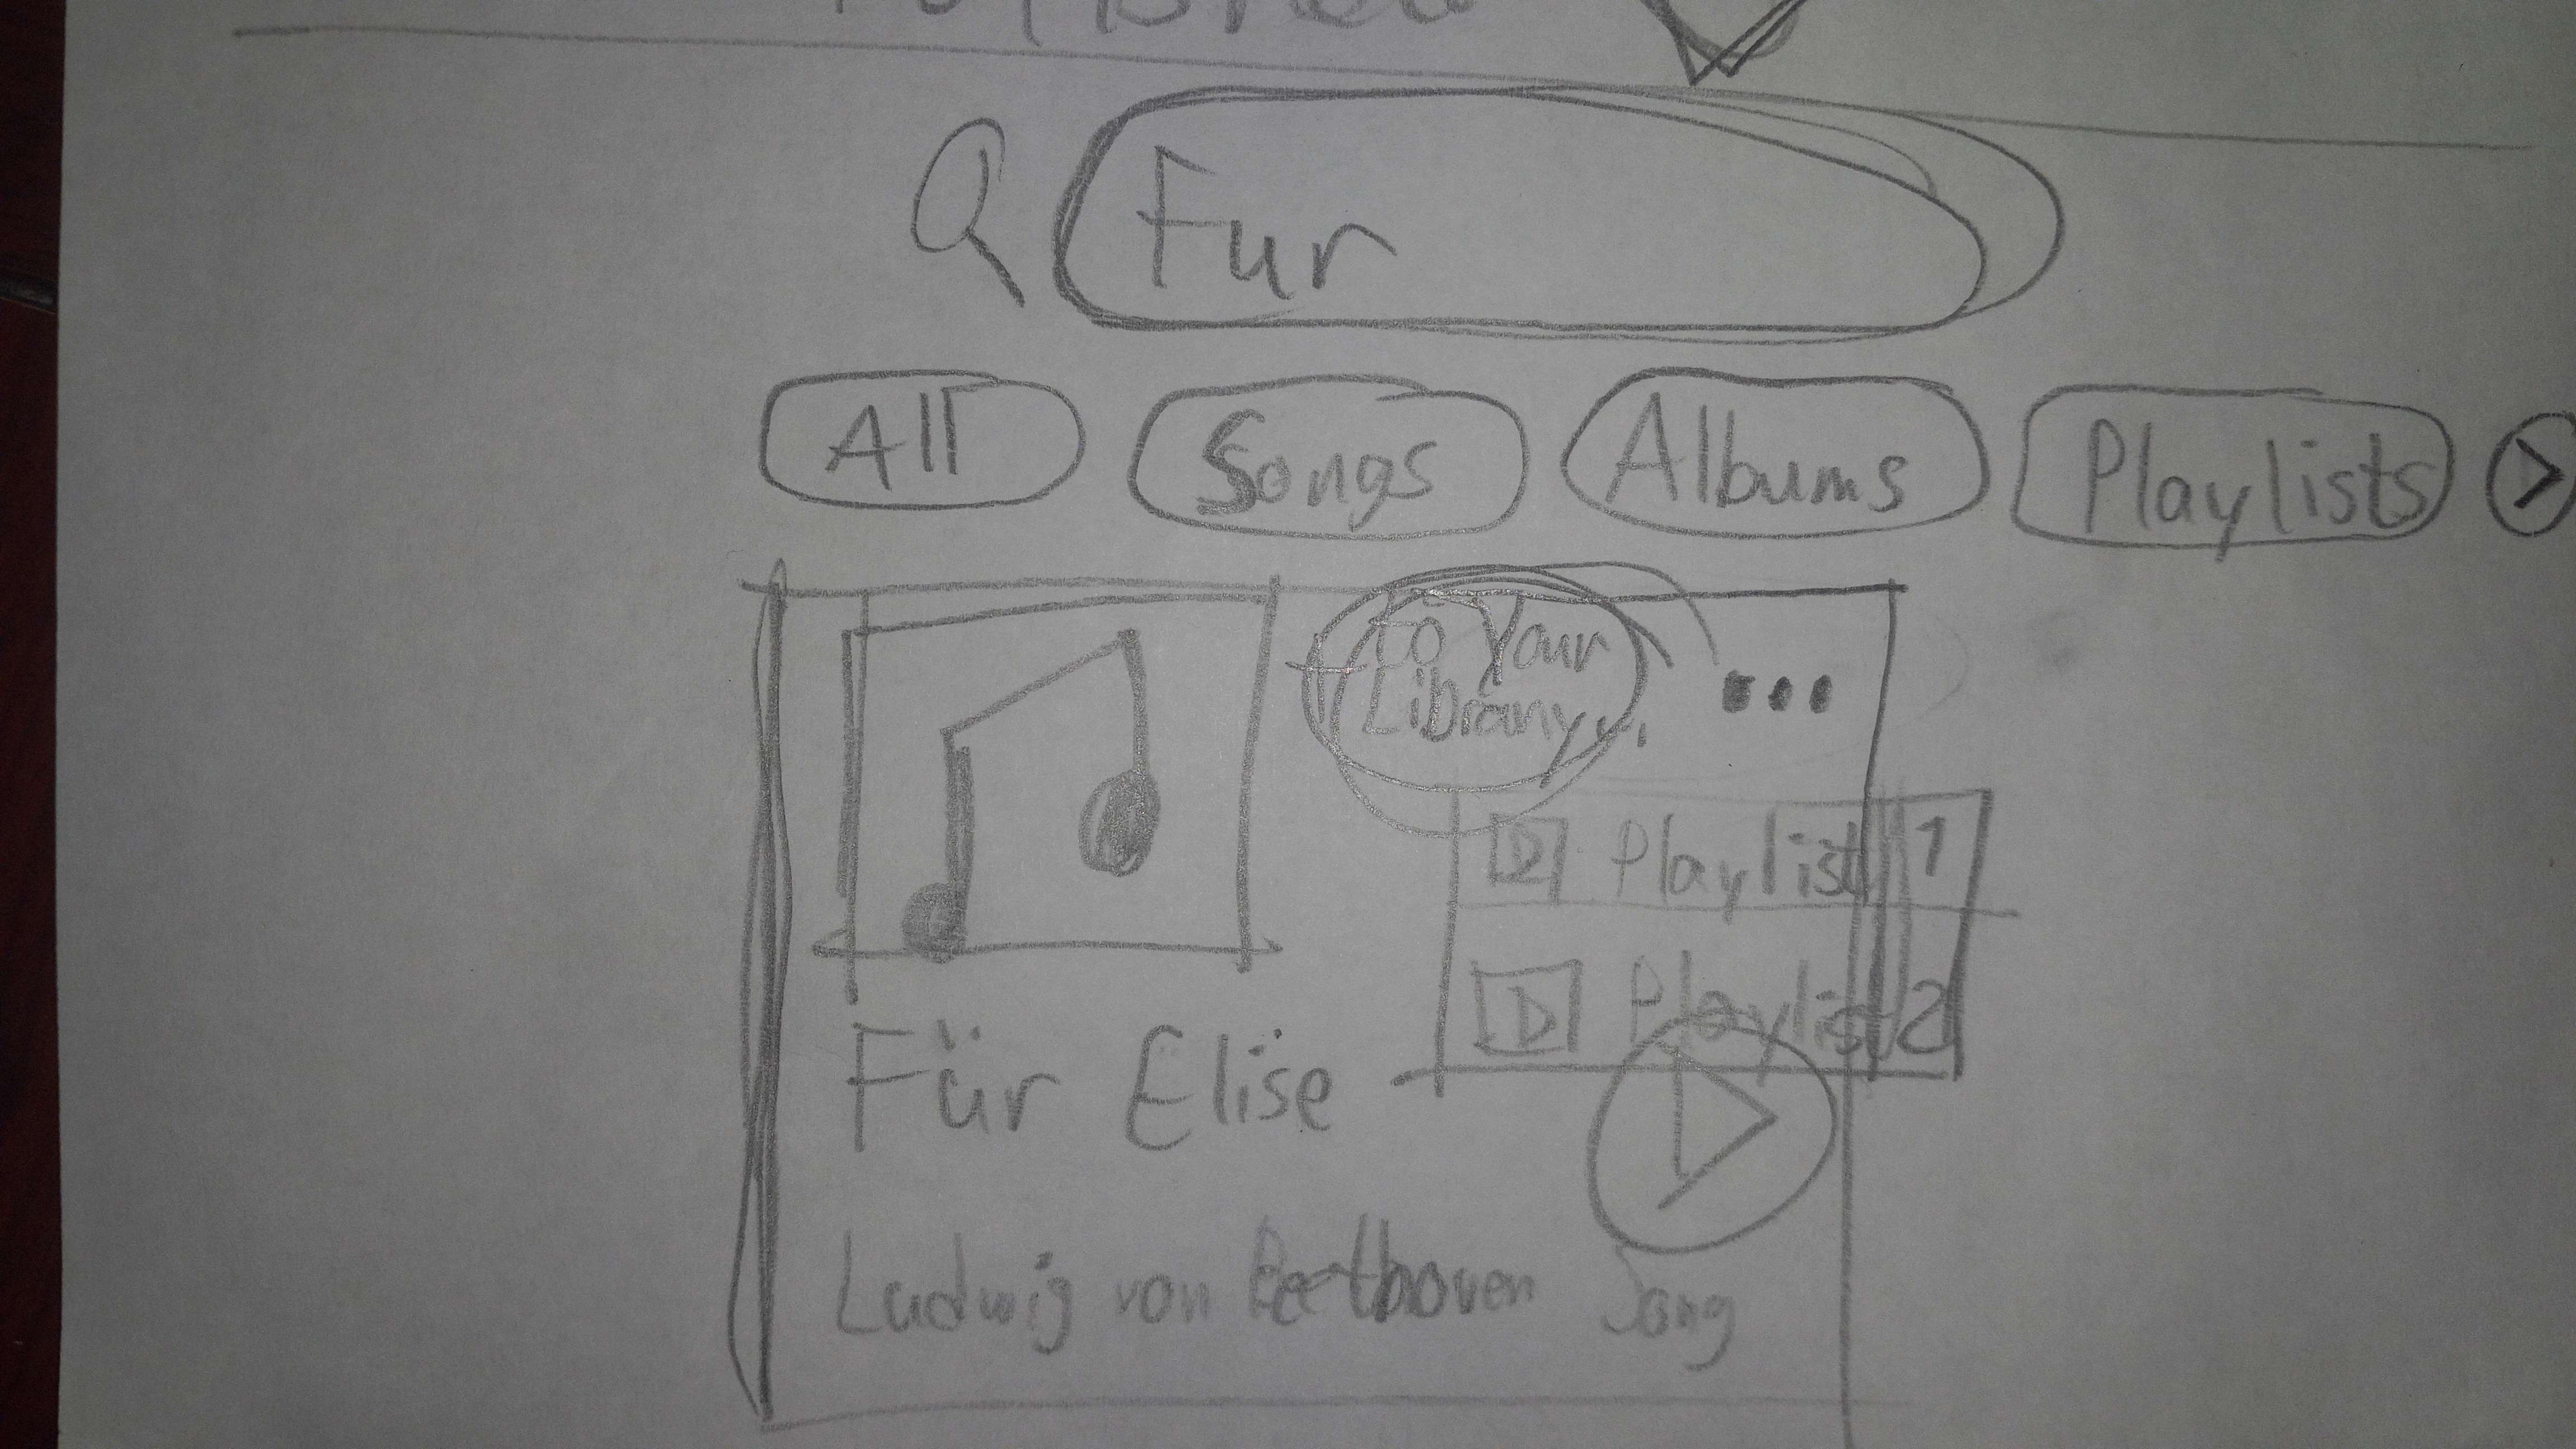 Fur
All Songs Albums Playlists >
+ to Your
Library...
Playlist 1
Playlist 2
Für Elise
Ludwig von Beethoven Song